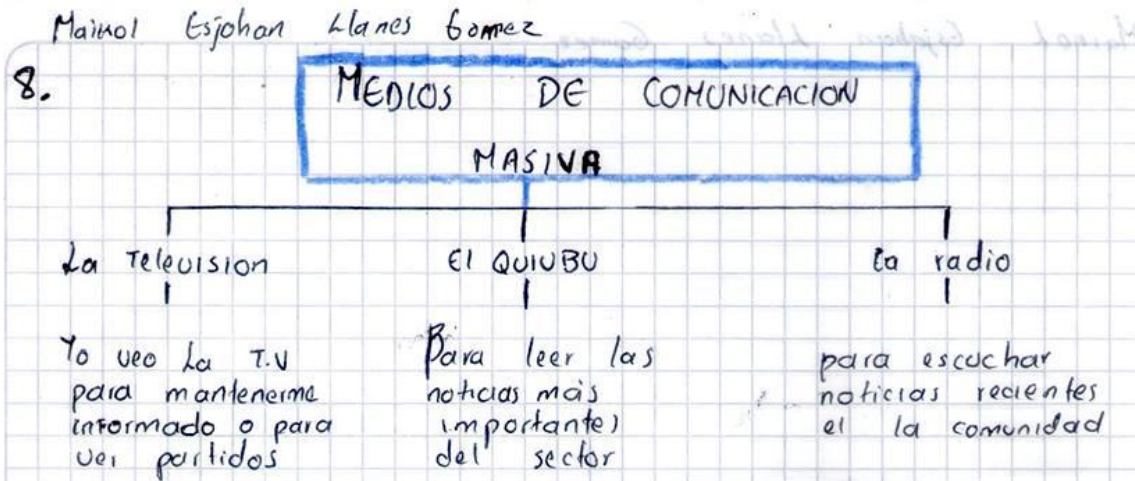 Mainol Esjohan Llanes Gomez
8.
MEDIOS DE COMUNICACION
MASIVA
La Television
Yo veo La T.V
para mantenerme
informado o para
ver partidos
El QUIUBU
Para leer las
noticias más
importantes
del sector
La radio
para escuchar
noticias recientes
el la comunidad